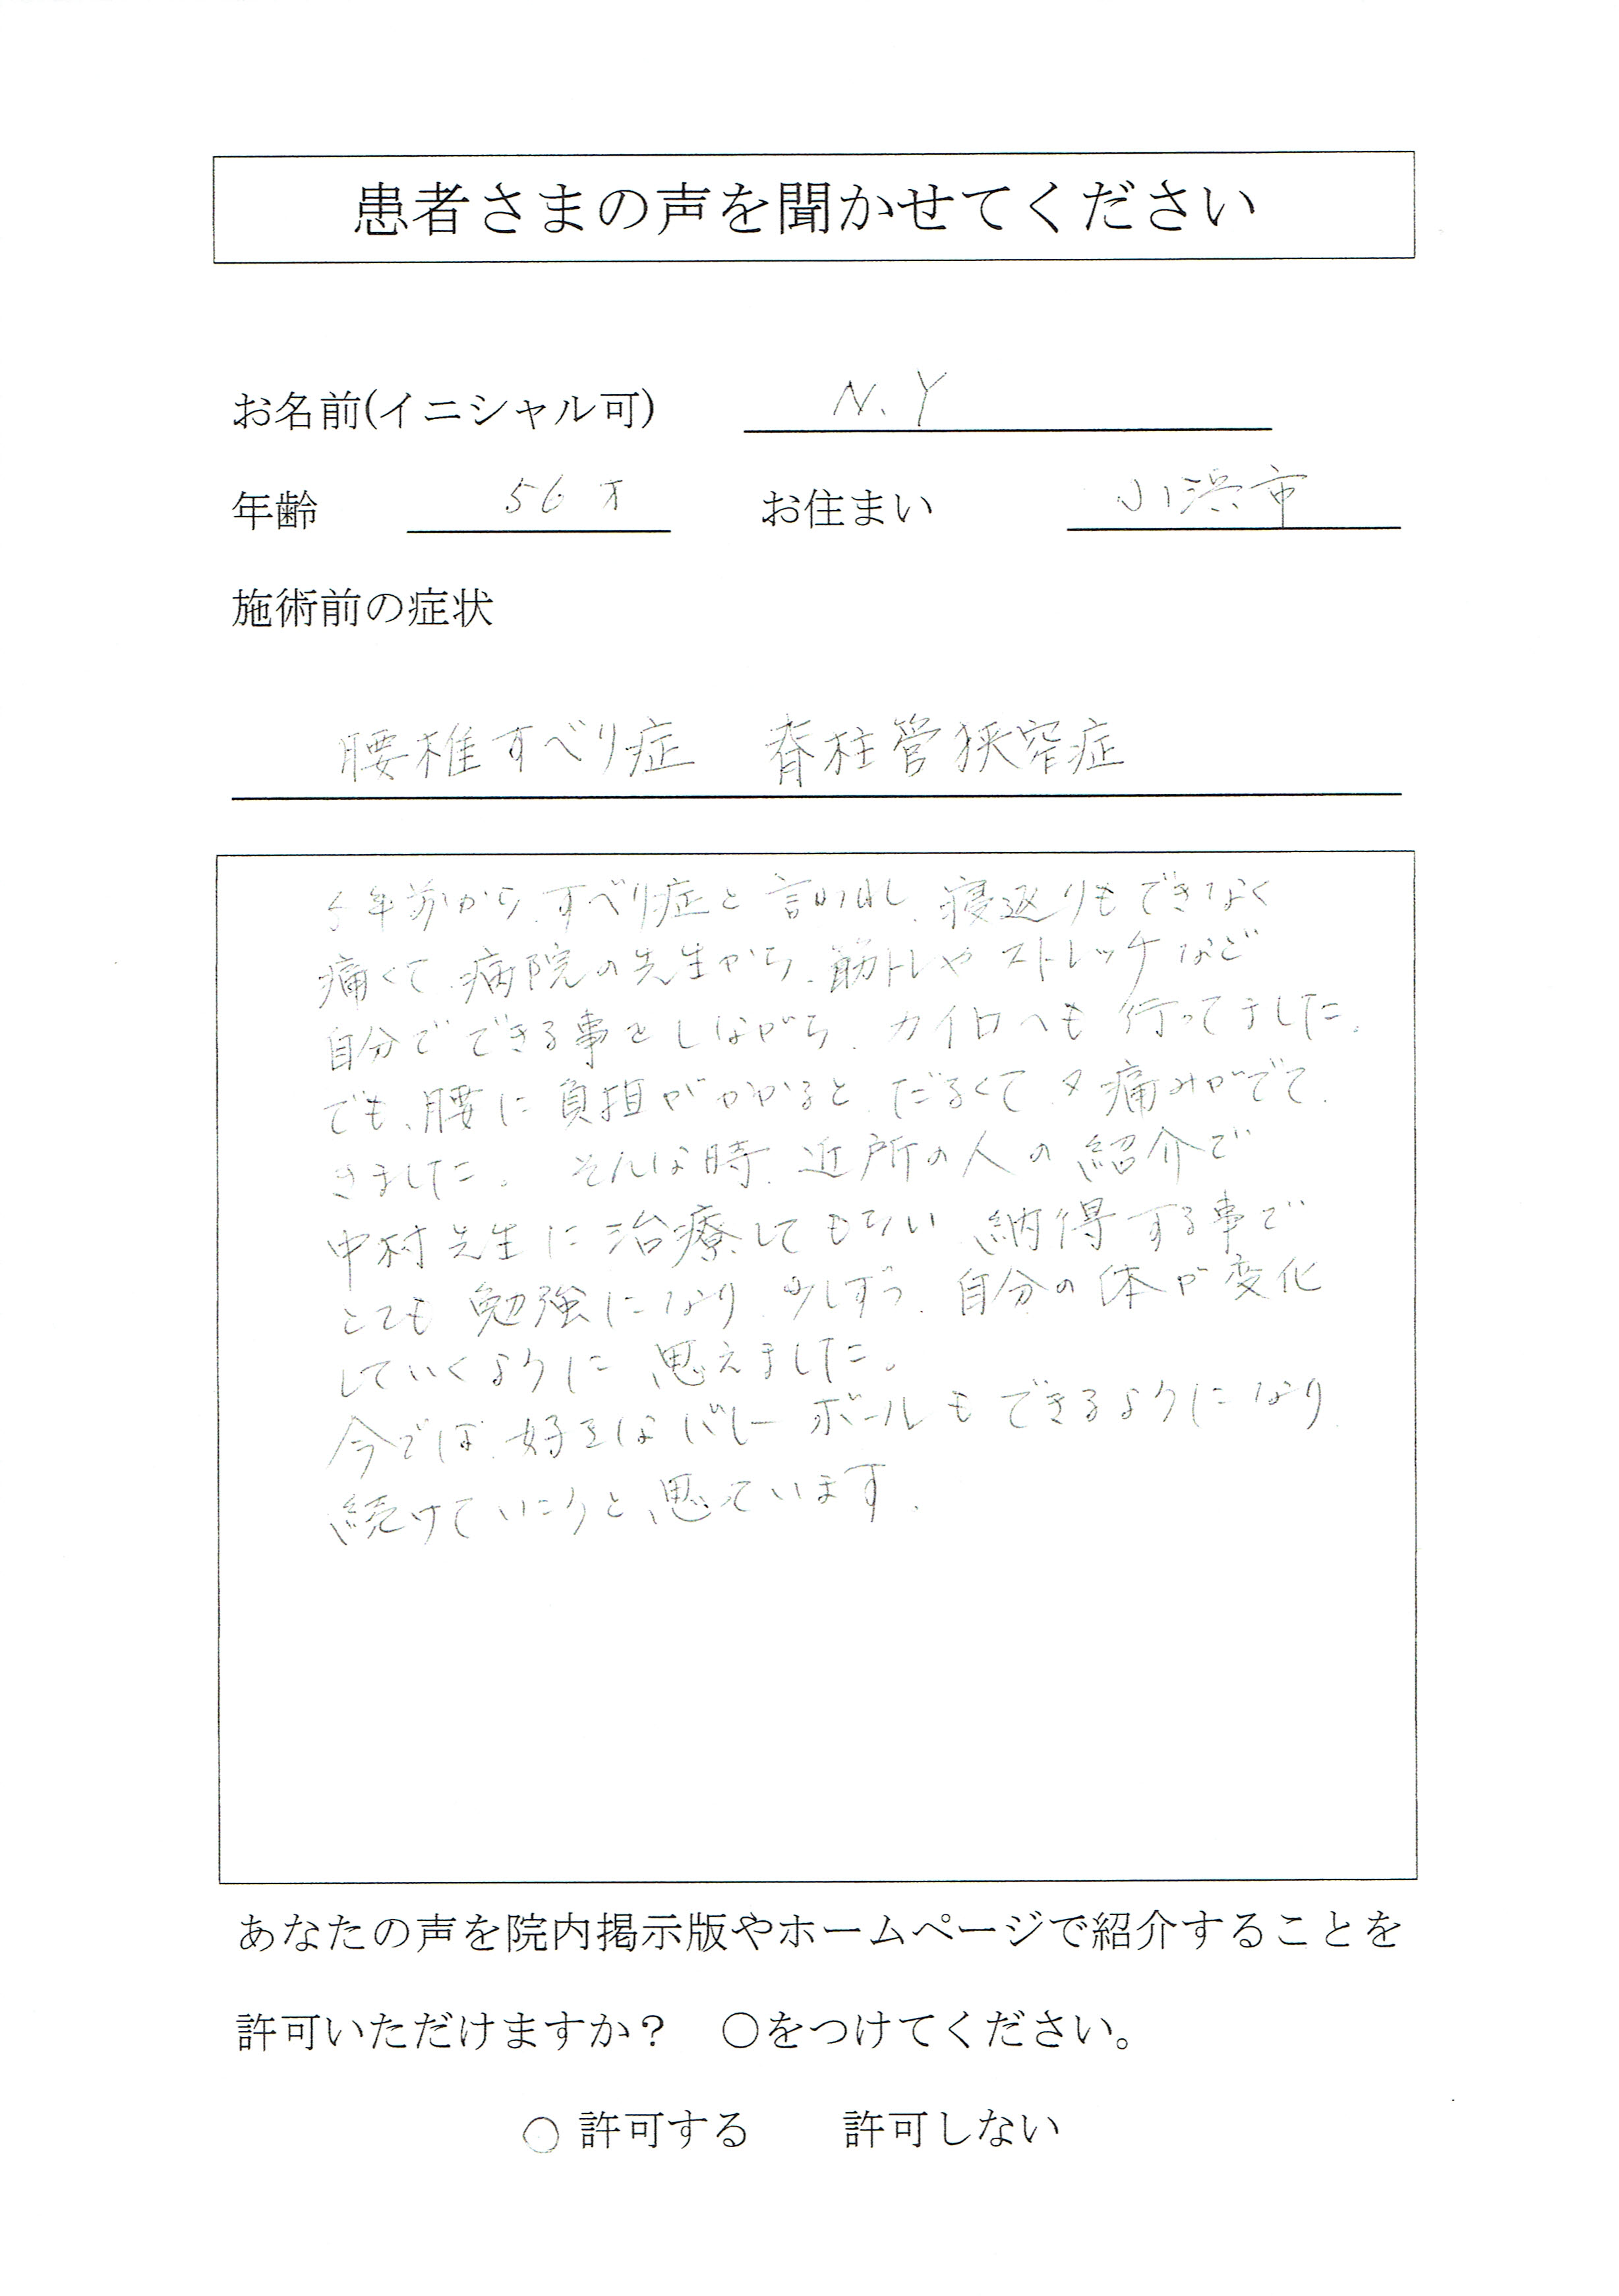 患者さまの声を聞かせてください
お名前(イニシャル可) N.Y
年齢 56才 お住まい 小浜市
施術前の症状
腰椎すべり症 脊柱管狭窄症
5年前から、すべり症と言われ、寝返りもできなく
痛くて、病院の先生から、筋トレやストレッチなど
自分でできる事をしながら、カイロへも行ってました。
でも、腰に負担がかかると、だるくて、又痛みがでて、
きました。そんな時、近所の人の紹介で
中村先生に治療してもらい、納得する事で
とても勉強になり、少しずつ、自分の体が変化
していくように思えました。
今では、好きなバレーボールもできるようになり、
続けていこうと思っています。
あなたの声を院内掲示版やホームページで紹介することを
許可いただけますか？ ○をつけてください。
○ 許可する 許可しない